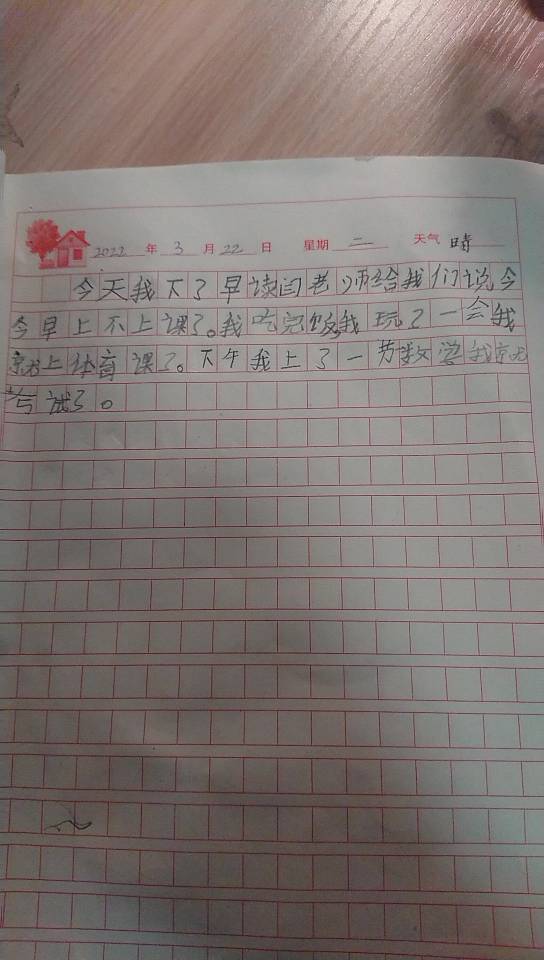 2022 年 3 月 22 日 星期 二 天气 晴
今天我下了早读闫老师给我们说今
今早上不上课了。我吃完饭我玩了一会我
就上体育课了。下午我上了一节数学我就
考试了。